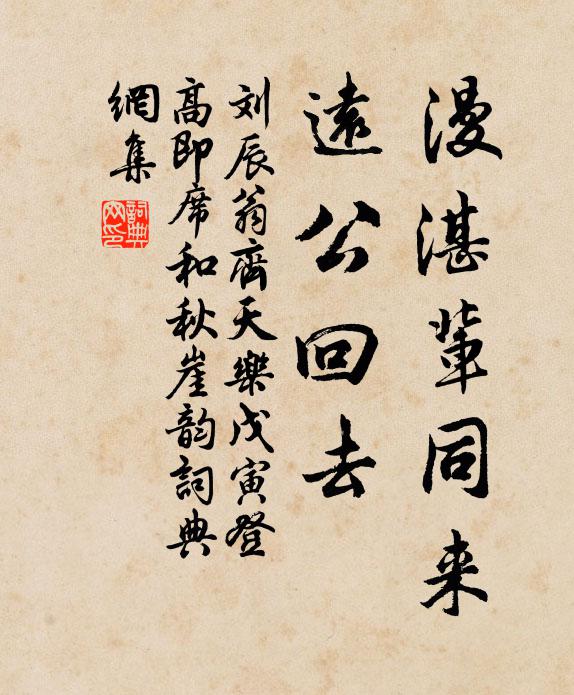 漫湛輩同来
遠公回去
刘辰翁齊天樂戊寅登
高即席和秋崖韵詞典
網集
詞典
网印